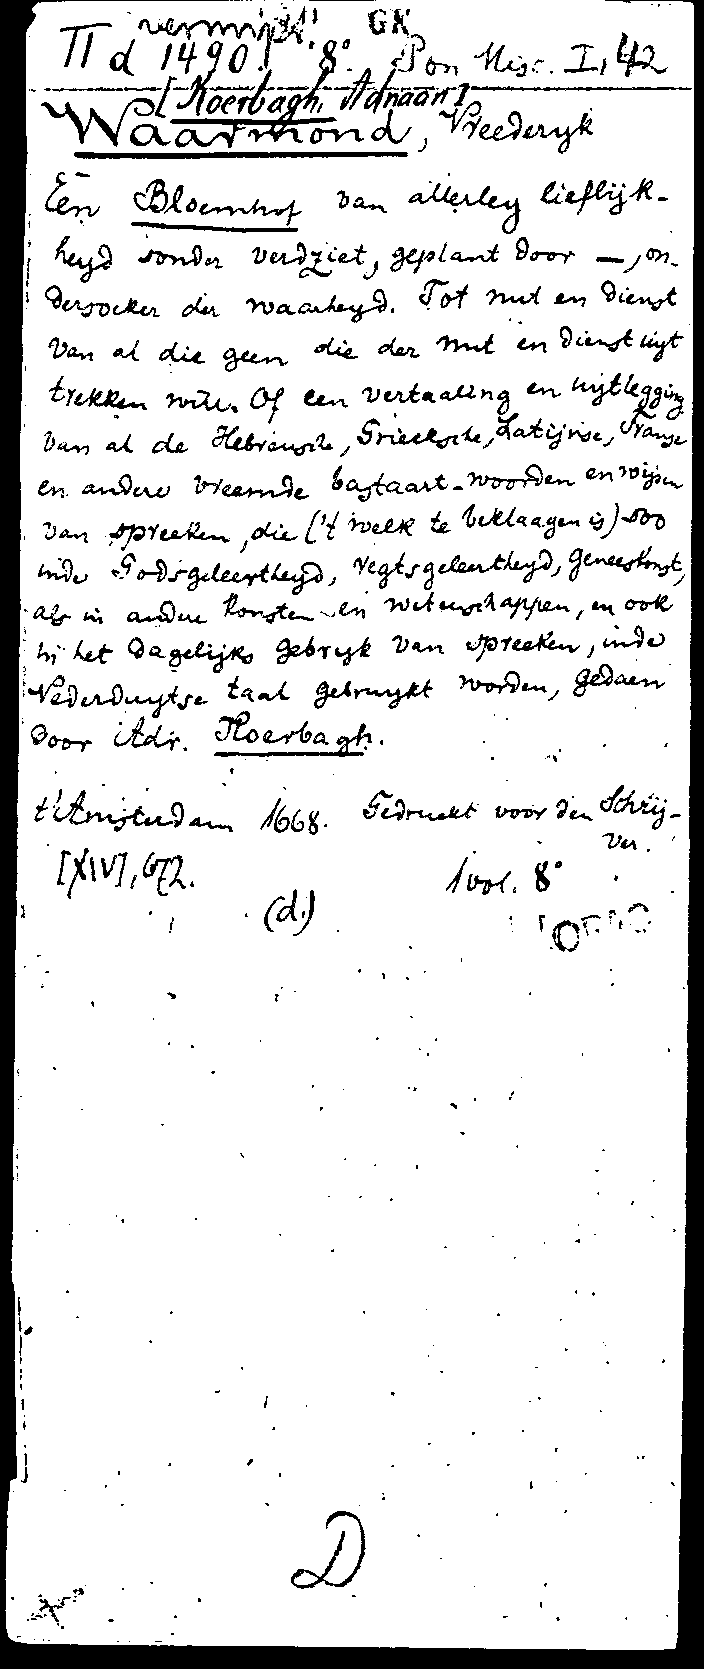 vermist! GK
II d 1490. 8°. Pon Misc. I, 42
[Koerbagh, Adriaan]
Waarmond, Vreederyk
Een Bloemhof van allerley lieflijk-
heyd sonder verdriet, geplant door —, on-
dersoeker der waarheyd. Tot nut en dienst
van al die geen die der nut en dienst uyt
trekken will. Of een vertaaling en uytlegging
van al de Hebreusche, Grieksche, Latijnse, Franse
en andere vreemde bastaart-woorden en wijsen
van spreeken, die ('t welk te beklaagen is) soo
inde Godsgeleertheyd, regtsgeleertheyd, geneeskonst,
als in andere konsten en wetenschappen, en ook
in het dagelijks gebruyk van spreeken, inde
Nederduytse taal gebruykt worden, gedaen
door Adr. Koerbagh.
t'Amsterdam 1668. Gedruckt voor den Schrij-
ver.
[XIV], 672. 1 vol. 8°
(d.)
D